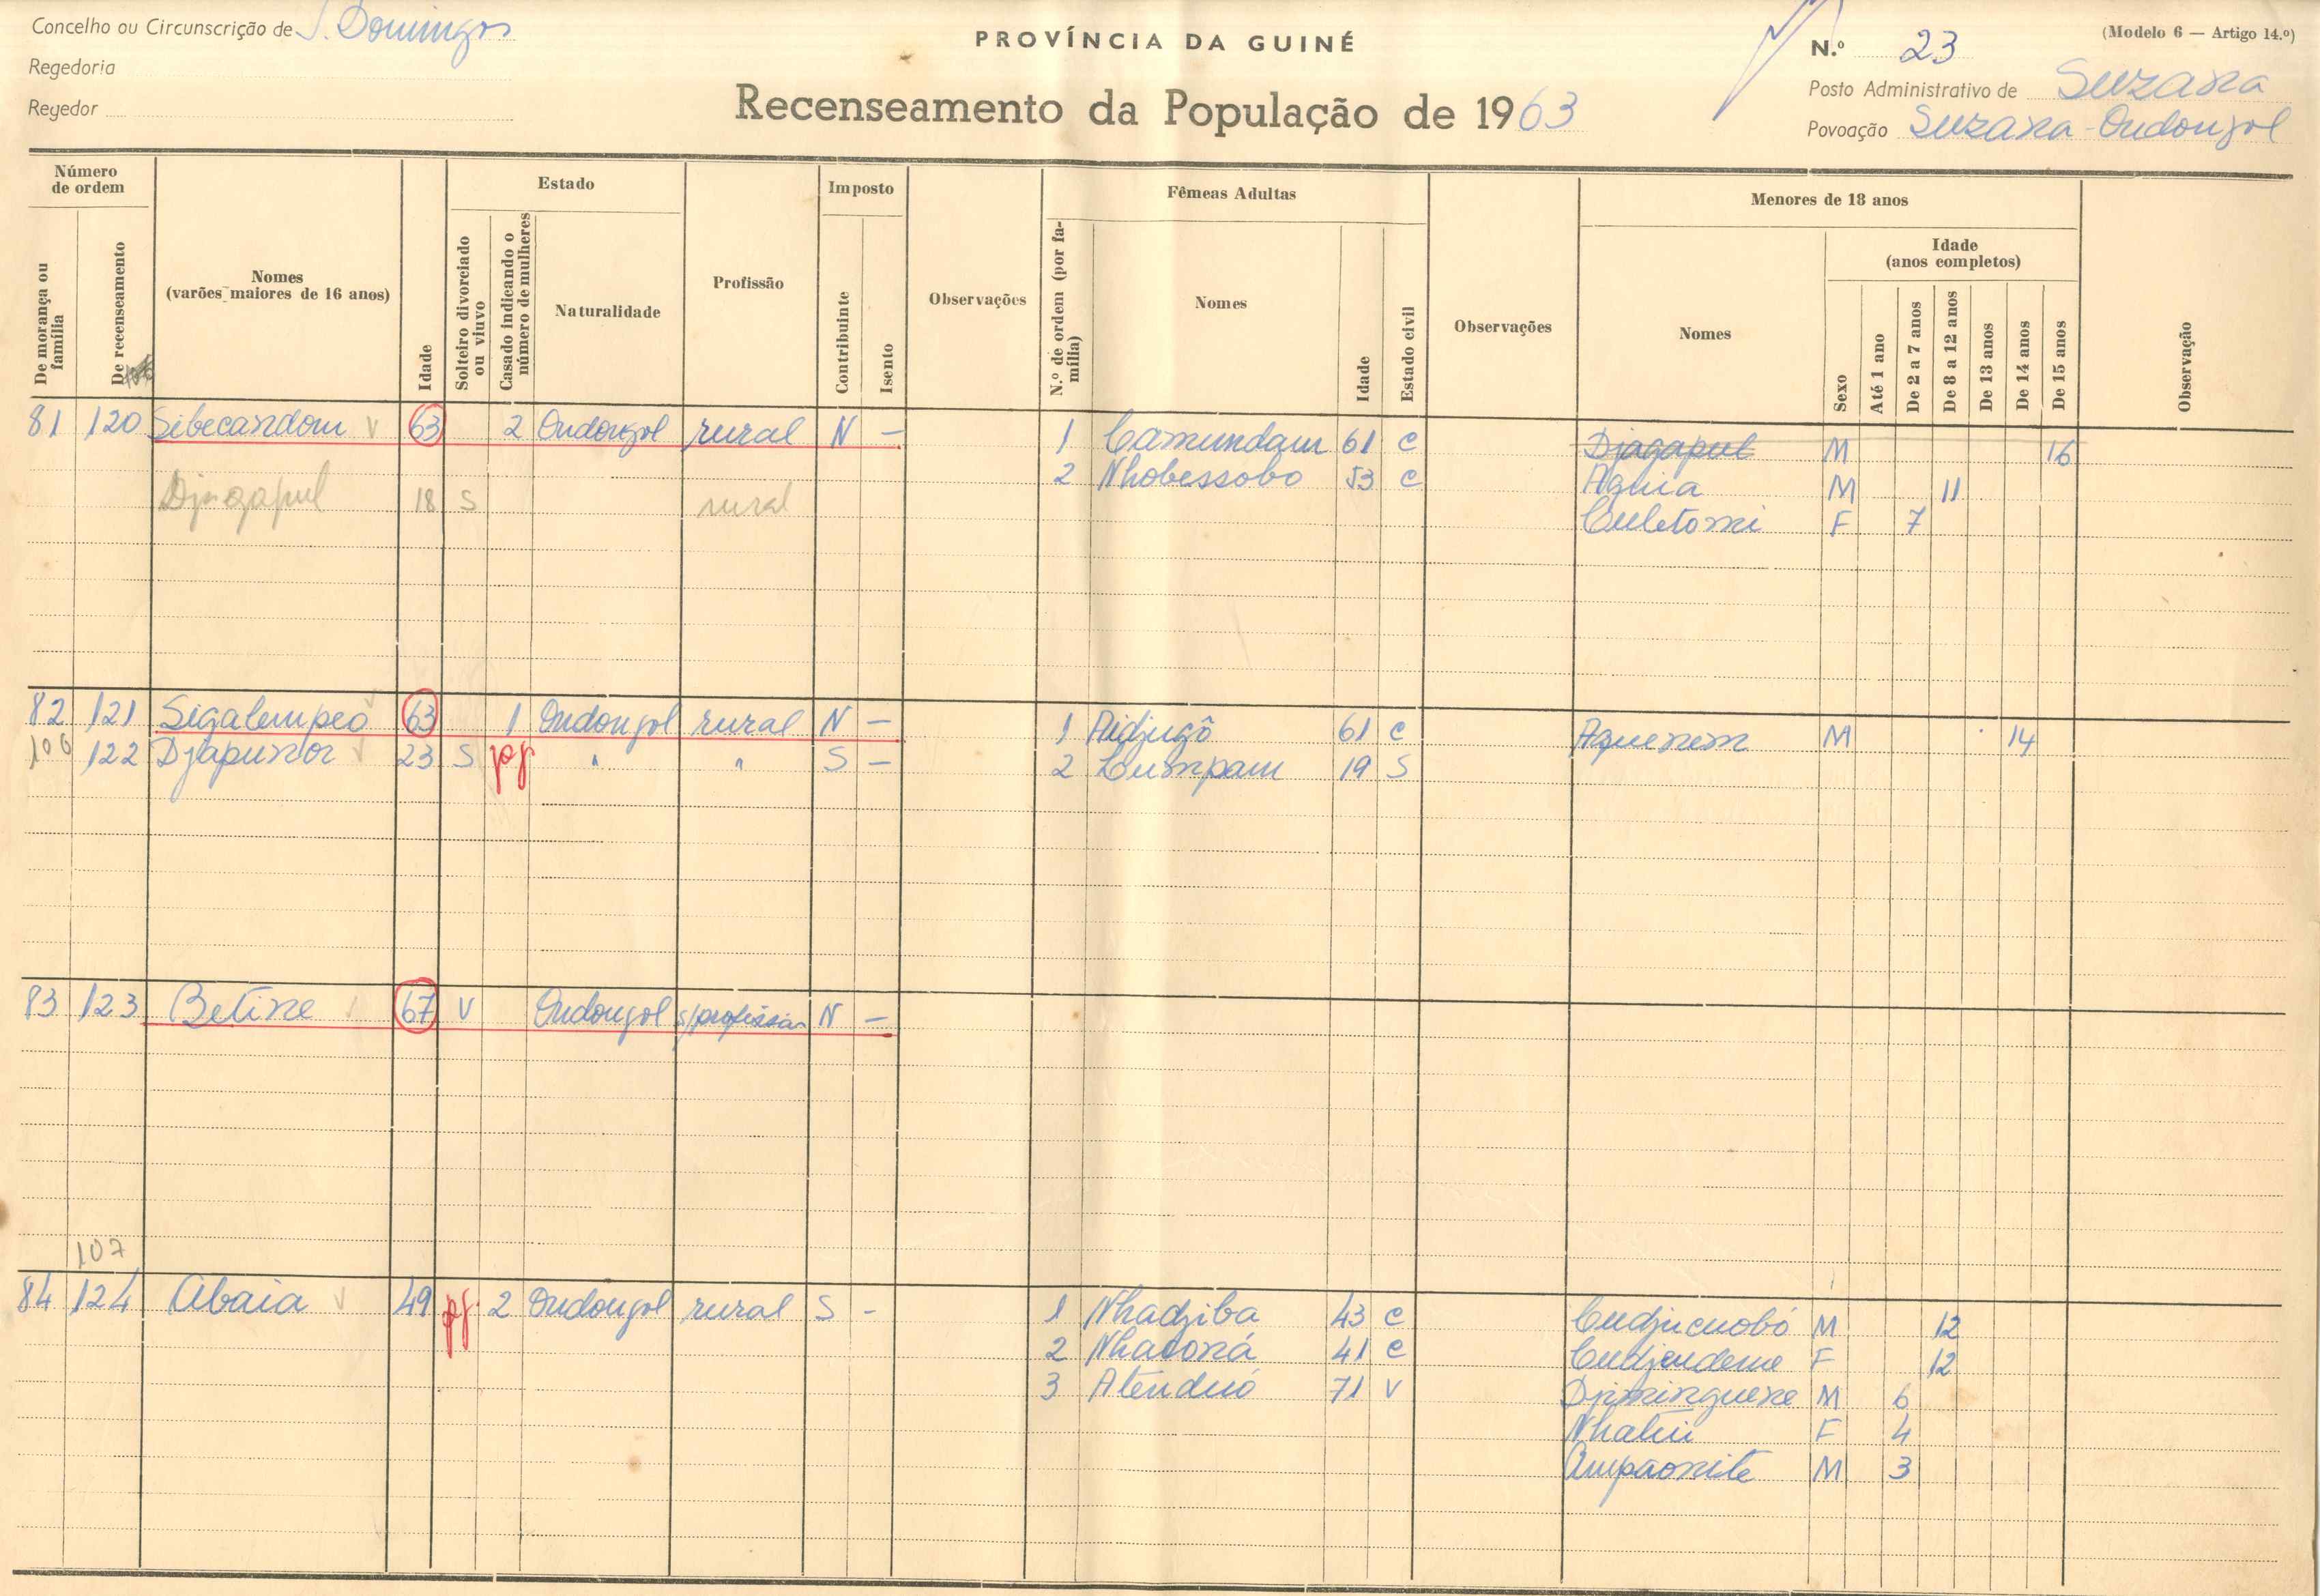 Concelho ou Circunscrição de S. Domingos
PROVÍNCIA DA GUINÉ
N.º 23
(Modelo 6 — Artigo 14.º)
Regedoria
Regedor
Recenseamento da População de 1963
Posto Administrativo de Suzana
Povoação Suzana-Ondongol
Número de ordem
De morança ou família
De recenseamento
Nomes
(varões maiores de 16 anos)
Idade
Estado
Solteiro divorciado ou viuvo
Casado indicando o número de mulheres
Naturalidade
Profissão
Imposto
Contribuinte
Isento
Observações
Fêmeas Adultas
N.º de ordem (por família)
Nomes
Idade
Estado civil
Observações
Menores de 18 anos
Nomes
Sexo
Idade
(anos completos)
Até 1 ano
De 2 a 7 anos
De 8 a 12 anos
De 13 anos
De 14 anos
De 15 anos
Observação
81 120 Sibecandom V 63 2 Ondongol rural N — 1 Camundam 61 C Djagapul M 16
2 Nhobessobo 53 C Aguia M 11
Djagapul 18 S rural
Culetomi F 7
82 121 Sigalempeo V 63 1 Ondongol rural N — 1 Aidjugô 61 C Aquenem M 14
106 122 Djapunor V 23 S pg. " " S — 2 Cumpam 19 S
83 123 Betine 67 V Ondongol s/profissão N —
107
84 124 Abaia V 49 pg. 2 Ondongol rural S - 1 Nhadjiba 43 C Cudjucuobó M 12
2 Nhaconá 41 C Cudjendeme F 12
3 Atenduó 71 V Djiminguene M 6
Nhalúi F 4
Ampaonite M 3